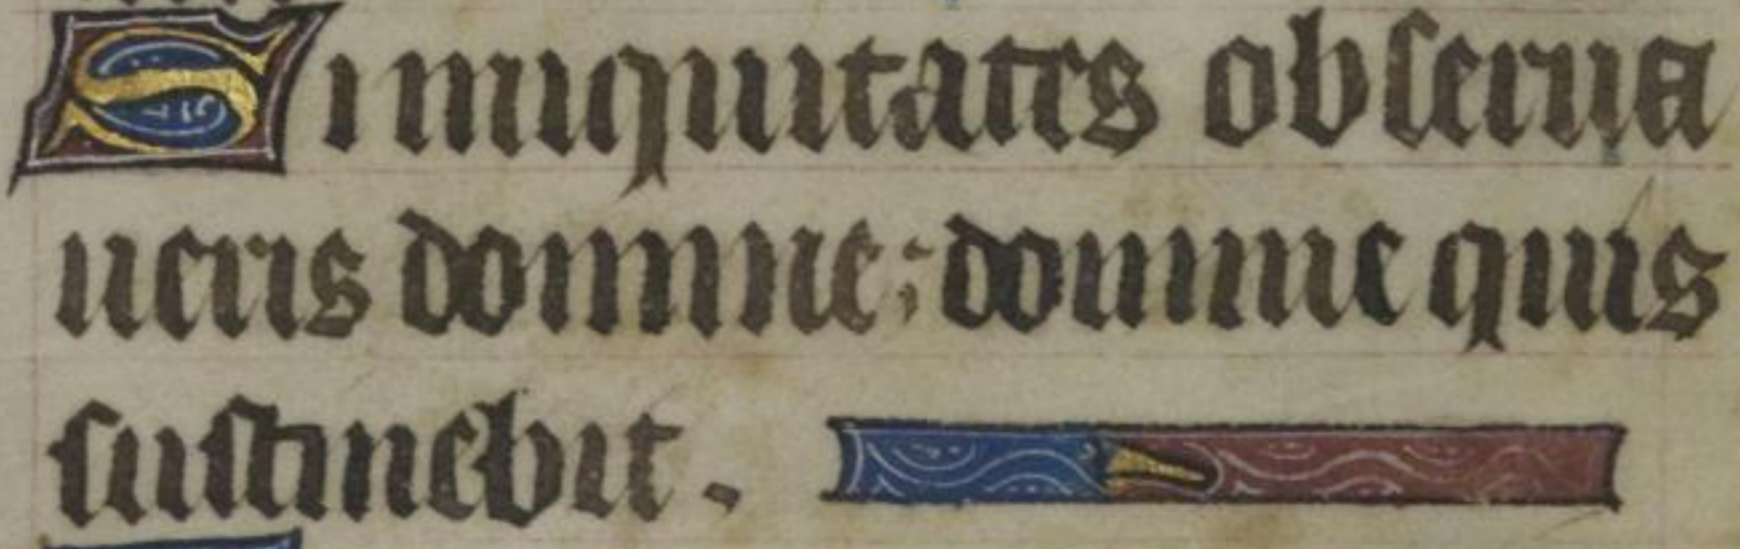 Si iniquitates obserua
ueris domine: domine quis
sustinebit.